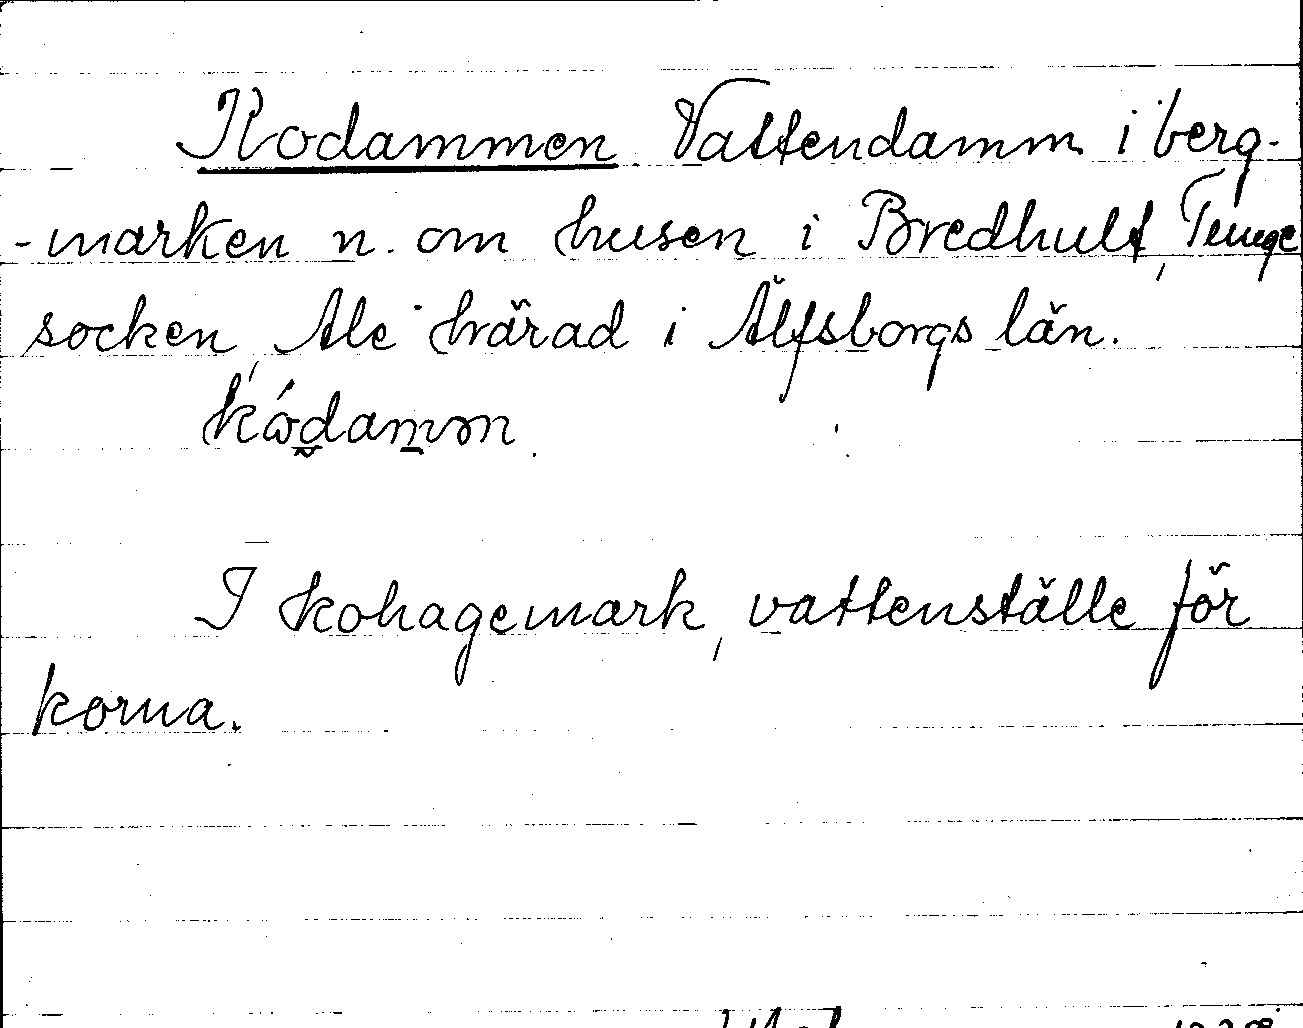 Kodammen. Vattendamm i berg-
-marken n. om husen i Bredhult, Tunge
socken, Ale härad i Älfsborgs län.
I kohagemark, vattenställe för
korna.